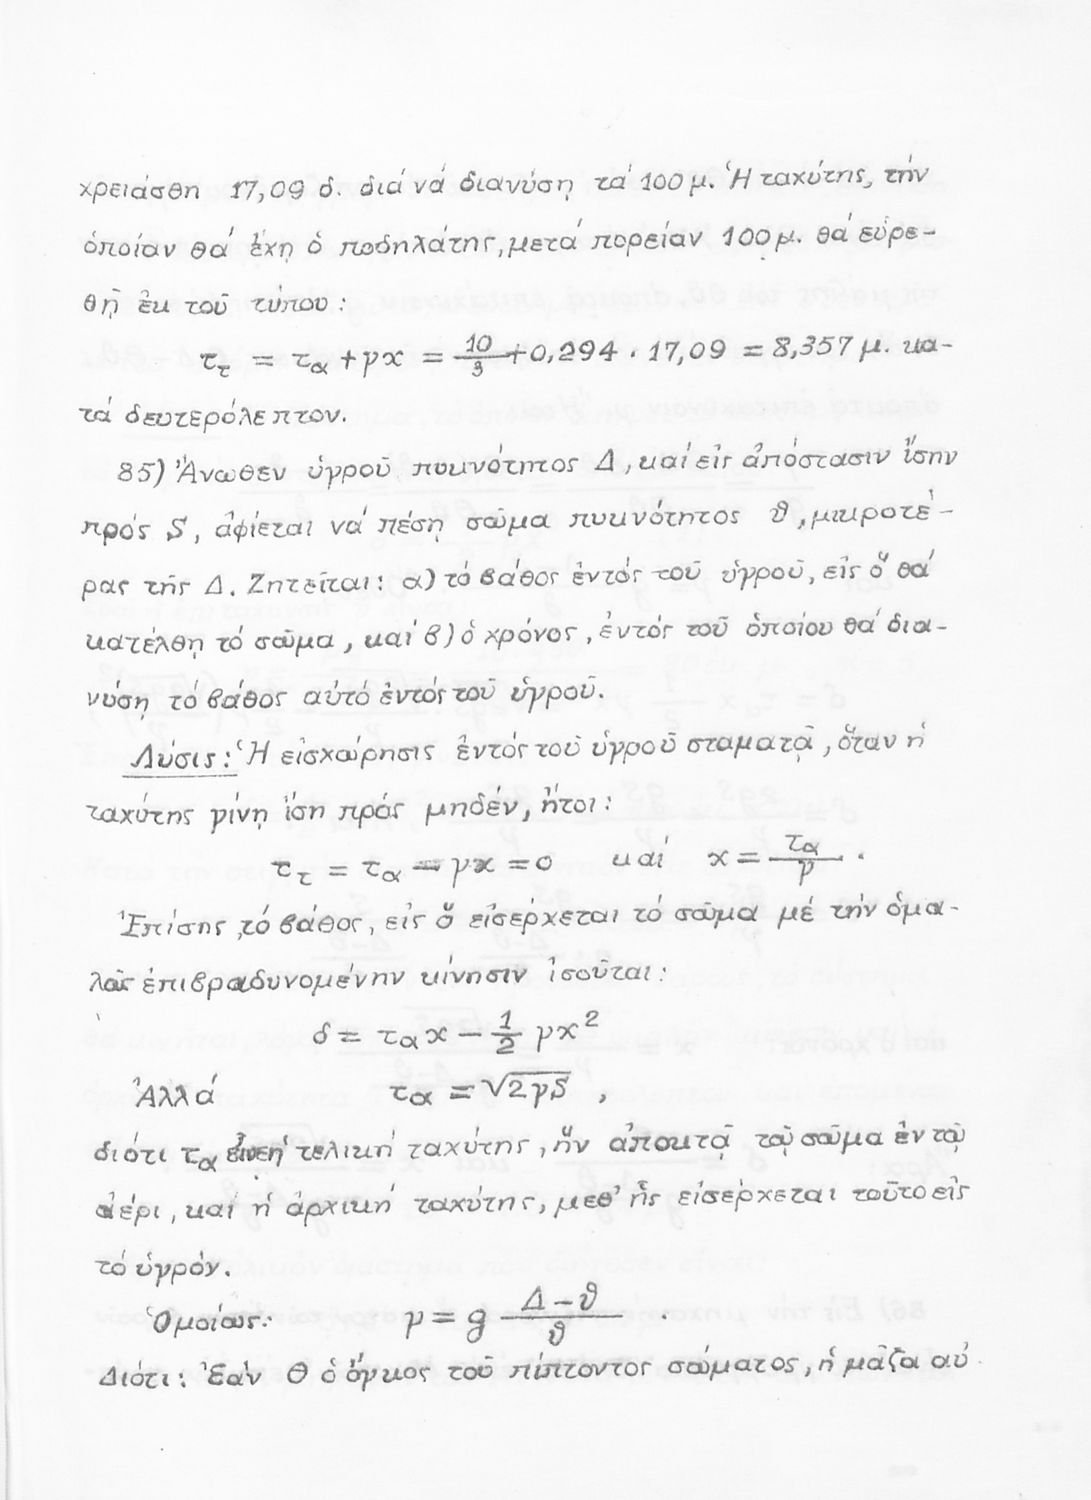 χρειάσθη 17,09 δ. διά νά διανύση̣ τά 100 μ. Ἡ ταχύτης, τήν
ὁποίαν θά ἔχῃ ὁ ποδηλάτης, μετά πορείαν 100 μ. θά εὑρε-
θῇ ἐκ τοῦ τύπου:
τ_τ = τ_α + γx = 10/3 + 0,294 . 17,09 = 8,357 μ. κα-
τά δευτερόλεπτον.
85) Ἄνωθεν ὑγροῦ πυκνότητος Δ, καί εἰς ἀπόστασιν ἴσην
πρός S, ἀφίεται νά πέσῃ σῶμα πυκνότητος ϑ, μικροτέ-
ρας τῆς Δ. Ζητεῖται: α) τό βάθος ἐντός τοῦ ὑγροῦ, εἰς ὅ θά
κατέλθῃ τό σῶμα, καί β) ὁ χρόνος, ἐντός τοῦ ὁποίου θά δια-
νύσῃ τό βάθος αὐτό ἐντός τοῦ ὑγροῦ.
Λύσις: Ἡ εἰσχώρησις ἐντός τοῦ ὑγροῦ σταματᾷ, ὅταν ἡ
ταχύτης γίνῃ ἴση πρός μηδέν, ἤτοι:
τ_τ = τ_α − γx = 0 καί x = τ_α/γ .
Ἐπίσης, τό βάθος, εἰς ὅ εἰσέρχεται τό σῶμα μέ τήν ὁμα-
λῶς ἐπιβραδυνομένην κίνησιν ἰσοῦται:
δ = τ_α x − 1/2 γx²
Ἀλλά τ_α = √2γS ,
διότι τ_α εἶνε ἡ τελική ταχύτης, ἥν ἀποκτᾷ τό σῶμα ἐν τῷ
ἀέρι, καί ἡ ἀρχική ταχύτης, μεθ' ἧς εἰσέρχεται τοῦτο εἰς
τό ὑγρόν.
Ὁμοίως: γ = g Δ − ϑ/ϑ .
Διότι: Ἐάν Θ ὁ ὄγκος τοῦ πίπτοντος σώματος, ἡ μᾶζα αὐ